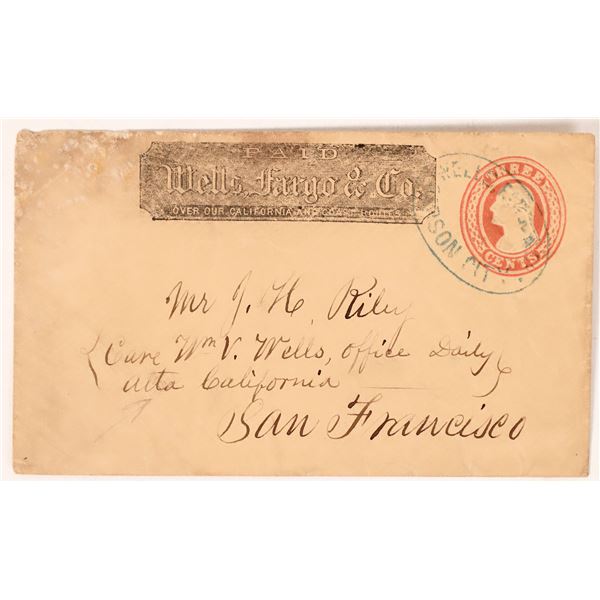 PAID
Wells, Fargo & Co.
OVER OUR CALIFORNIA AND COAST ROUTES
THREE
CENTS
Mr J. H. Riley
Care Wm V. Wells, office Daily
Alta California
San Francisco